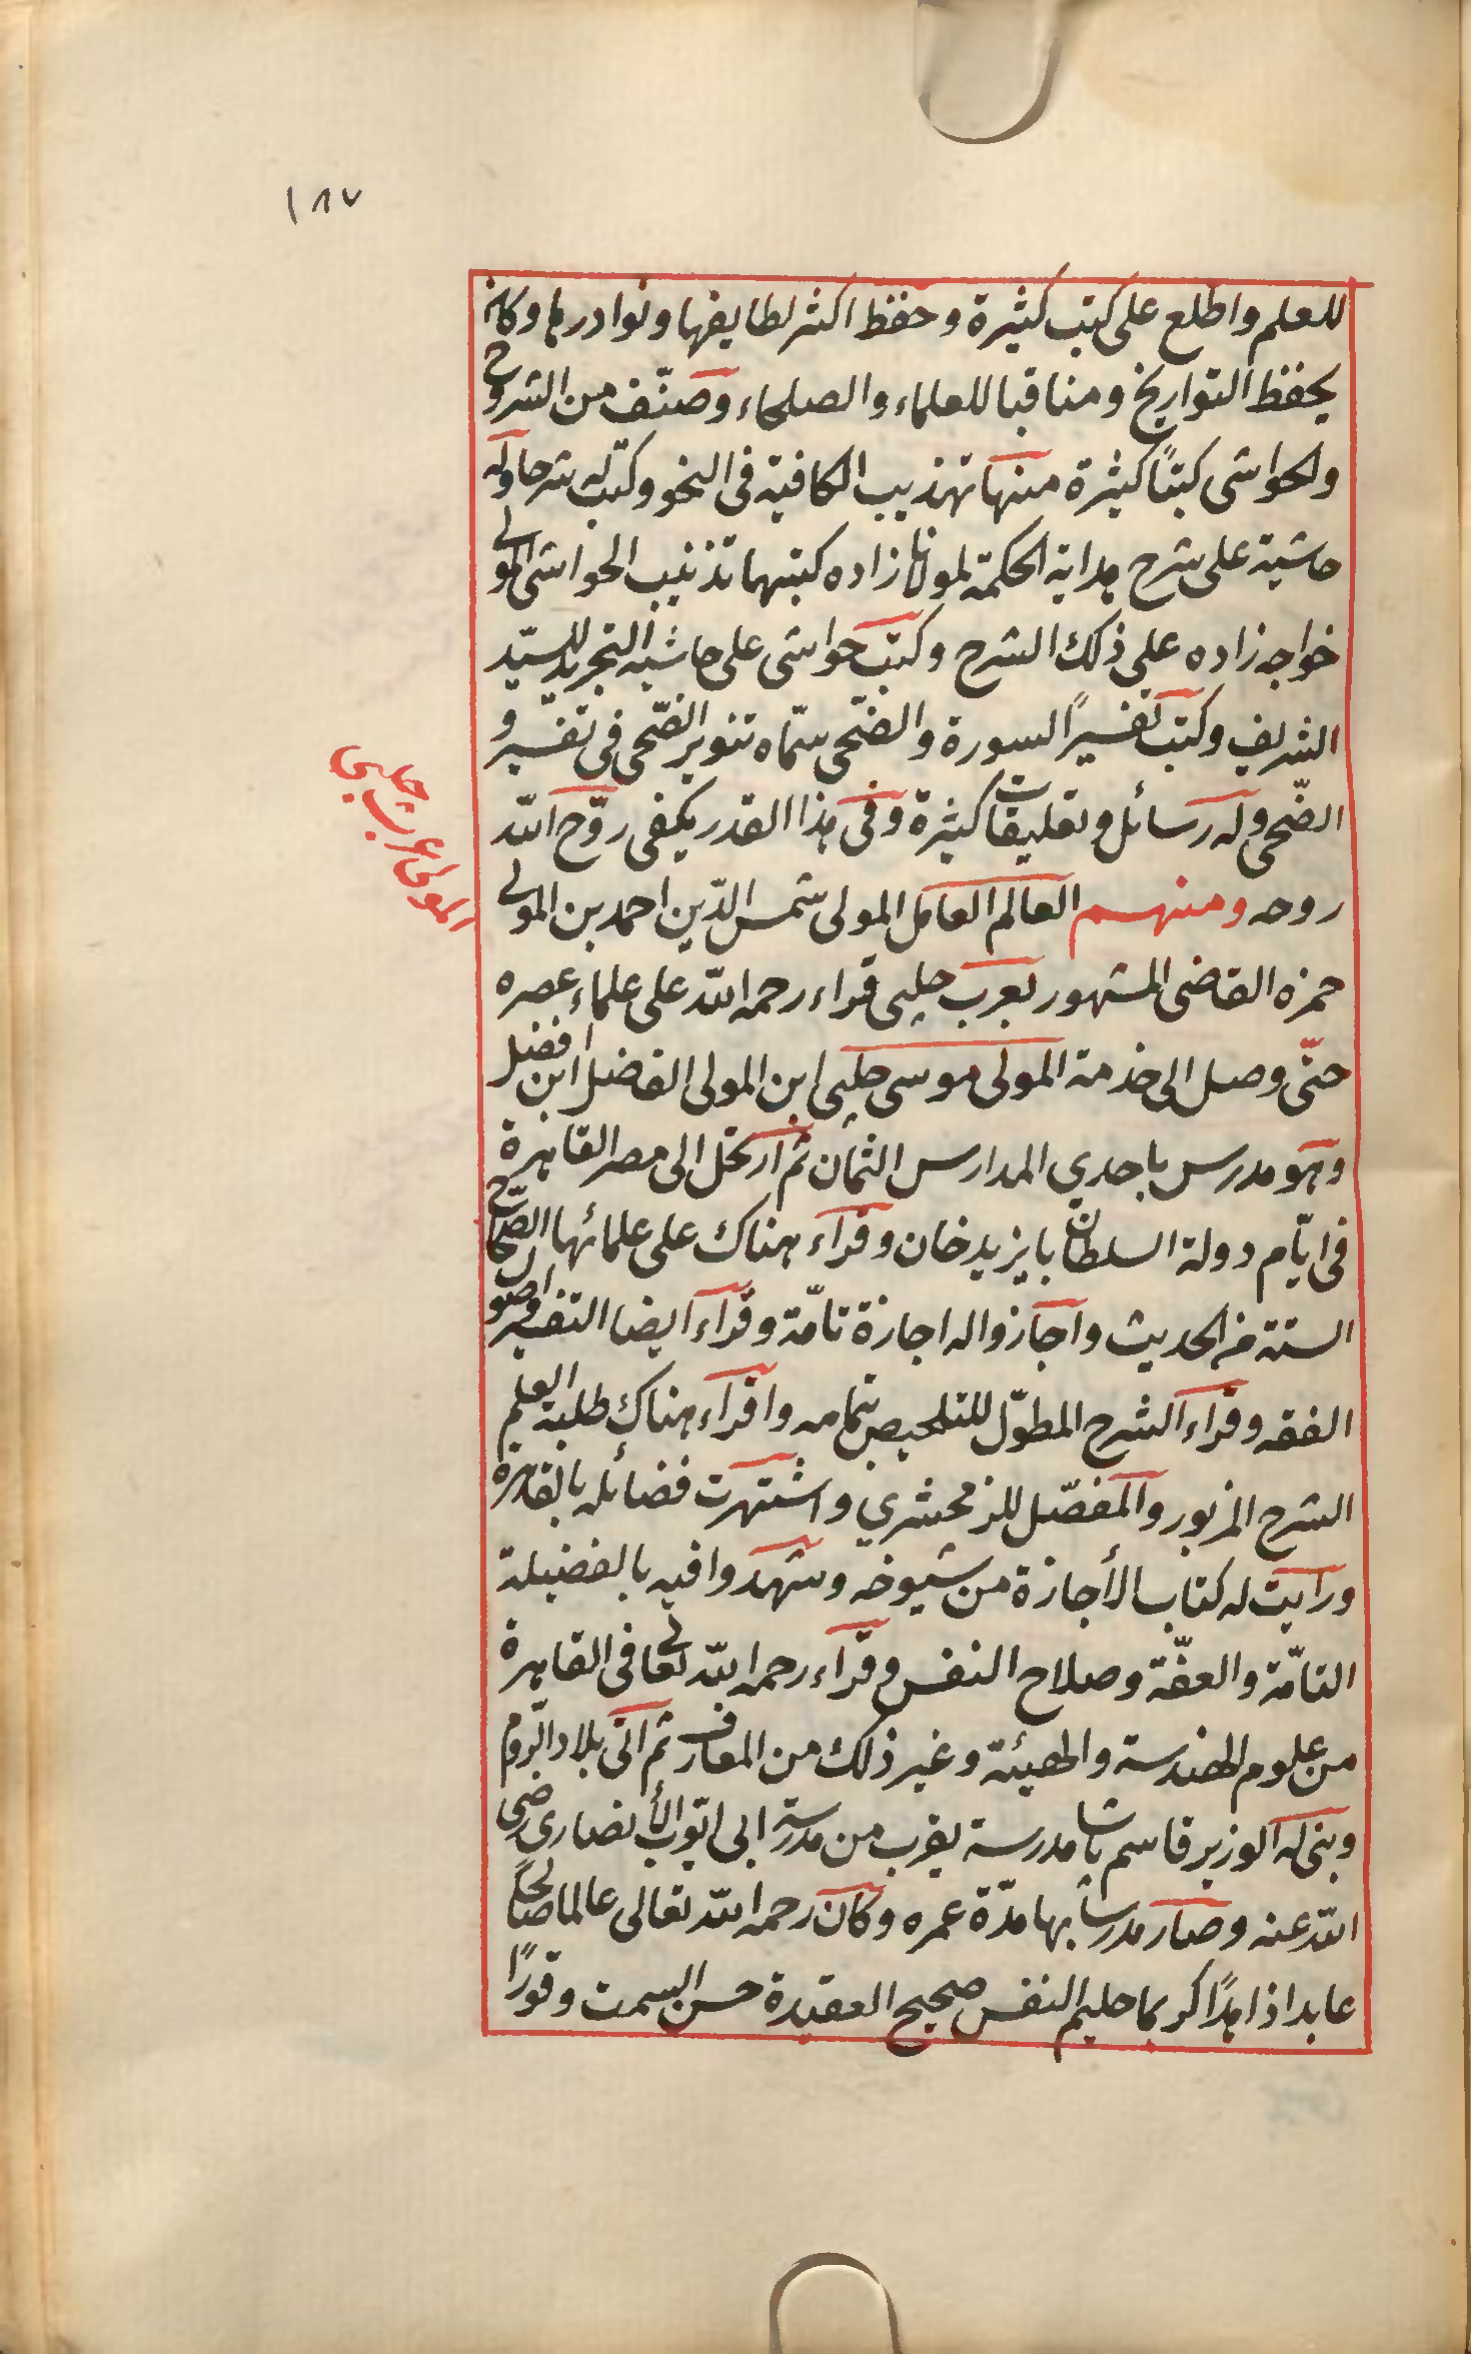 ١٨٧
للعلم واطلع على كتب كثيرة وحفظ اكثر لطايفها ونوادرها وكان
يحفظ التواريخ ومناقبا للعلماء والصلحاء وصنّف من الشروح
والحواشى كتبًا كثيرة منها تهذيب الكافية فى النحو وكتب له شرحا وله
حاشية على شرح هداية الحكمة لمولانا زاده كتبها تذنيب الحواشى المولى
خواجه زاده على ذلك الشرح وكتب حواشى على حاشية التجريد للسيّد
الشريف وكتب تفسيرًا لسورة والضّحى سمّاه تنوير الضّحى فى تفسير و
الضّحى وله رسائل وتعليقات كثيرة وفى هذا القدر يكفى روّح الله
روحه ومنهم العالم العامل المولى شمس الدّين احمد بن المولى
حمزه القاضى المشهور بعرب جلبى قراء رحمه الله على علماء عصره
حتّى وصل الى خدمة المولى موسى جلبى ابن المولى الفاضل ابن افضل
وهو مدرس باحدي المدارس الثمان ثم ارتحل الى مصر القاهرة
فى ايّام دولة السلطان بايزيد خان وقراء هناك على علمائها الصّحاح
الستة من الحديث واجازوا له اجازة تامّة وقراء ايضا التفسير واصول
الفقه وقراء الشرح المطوّل للتلخيص بتمامه واقراء هناك طلبة العلم
الشرح المزبور والمفصّل للزمخشري واشتهرت فضائله بالقاهرة
ورايت له كتاب الأجازة من شيوخه وشهدوا فيه بالفضيلة
التامّة والعفّة وصلاح النفس وقراء رحمه الله تعالى فى القاهرة
من علوم الهندسة والهيئة وغير ذلك من المعارف ثم اتى بلاد الرّوم
وبنى له الوزير قاسم باشا مدرسة بقرب من مدرسة ابى ايّوب الأنصارى رضى
الله عنه وصار مدرسا بها مدّة عمره وكان رحمه الله تعالى عالما صالحًا
عابدا زاهدًا كريما حليم النفس صحيح العقيدة حسن السمت وقورًا
المولى عرب جلبى